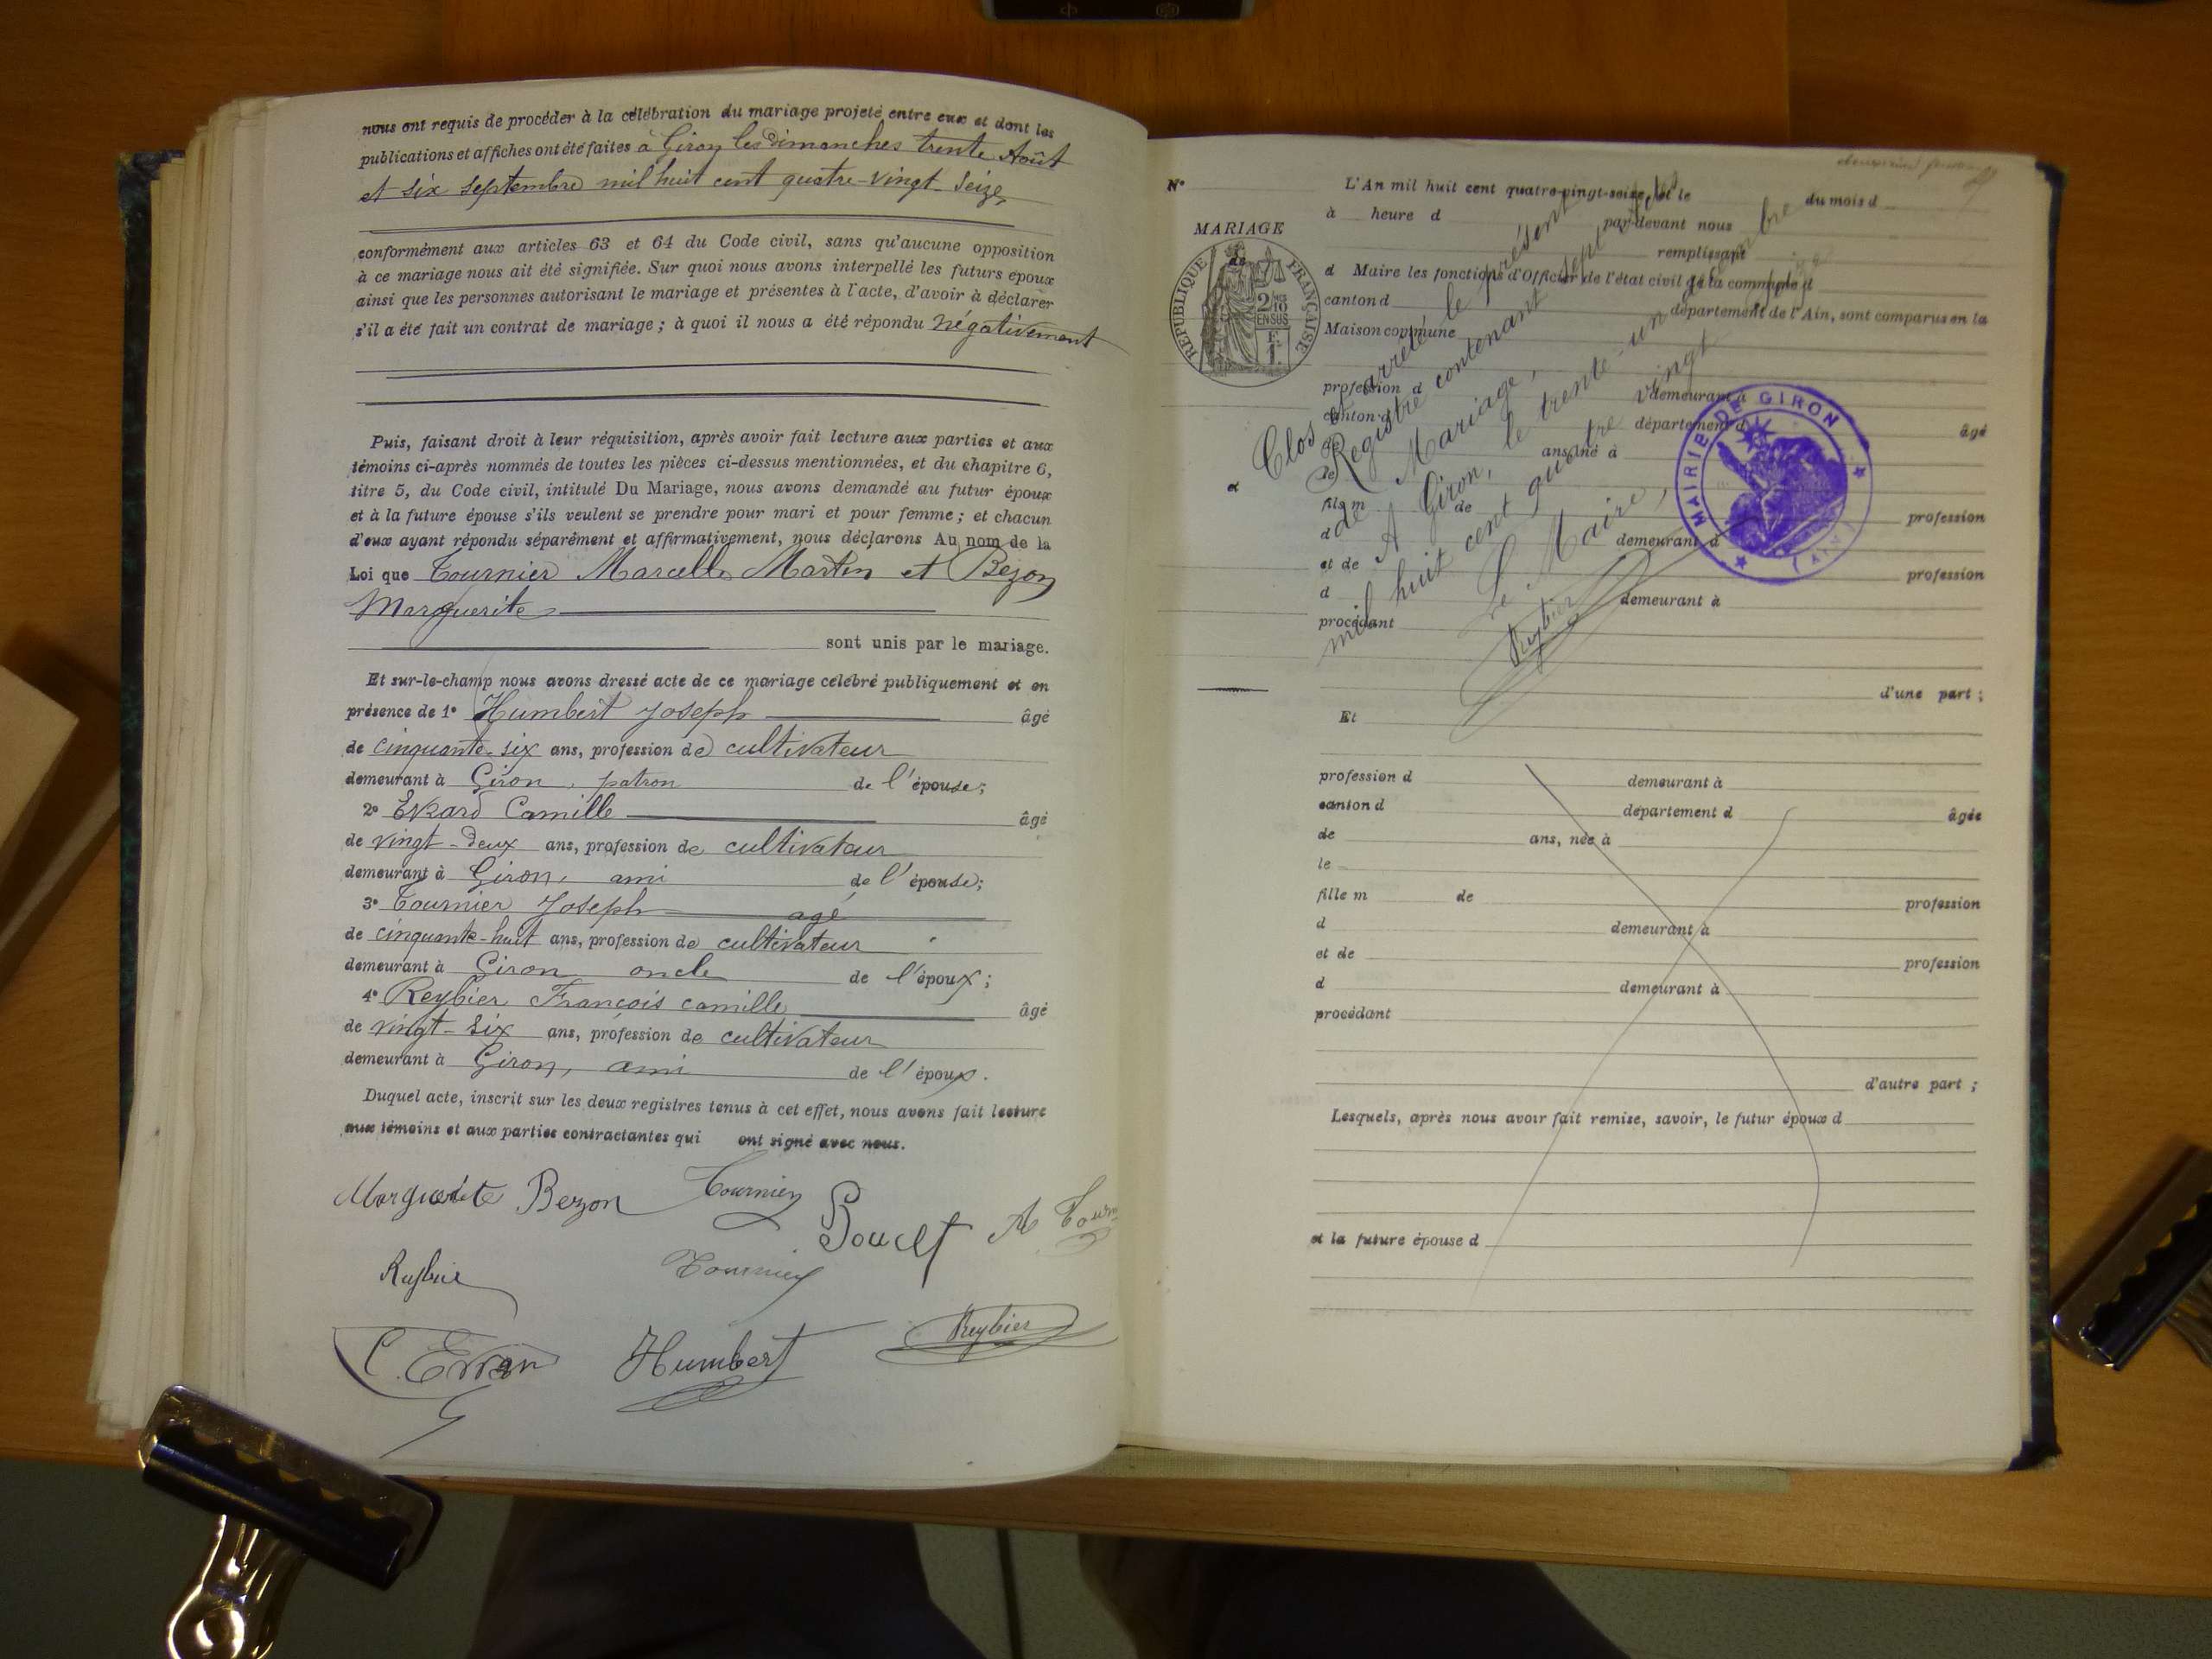 nous ont requis de procéder à la célébration du mariage projeté entre eux et dont les
publications et affiches ont été faites à Giron les dimanches trente Août
et six septembre mil huit cent quatre-vingt-seize
conformément aux articles 63 et 64 du Code civil, sans qu'aucune opposition
à ce mariage nous ait été signifiée. Sur quoi nous avons interpellé les futurs époux
ainsi que les personnes autorisant le mariage et présentes à l'acte, d'avoir à déclarer
s'il a été fait un contrat de mariage ; à quoi il nous a été répondu négativement
Puis, faisant droit à leur réquisition, après avoir fait lecture aux parties et aux
témoins ci-après nommés de toutes les pièces ci-dessus mentionnées, et du chapitre 6,
titre 5, du Code civil, intitulé Du Mariage, nous avons demandé au futur époux
et à la future épouse s'ils veulent se prendre pour mari et pour femme ; et chacun
d'eux ayant répondu séparément et affirmativement, nous déclarons Au nom de la
Loi que Tournier Marcelle Martin et Bezon
Marguerite
sont unis par le mariage.
Et sur-le-champ nous avons dressé acte de ce mariage célébré publiquement et en
présence de 1° Humbert Joseph âgé
de cinquante-six ans, profession de cultivateur
demeurant à Giron, patron de l'épouse;
2° Evrard Camille âgé
de vingt-deux ans, profession de cultivateur
demeurant à Giron, ami de l'épouse;
3° Tournier Joseph agé
de cinquante-huit ans, profession de cultivateur
demeurant à Giron oncle de l'époux;
4° Reybier François camille âgé
de vingt-six ans, profession de cultivateur
demeurant à Giron, ami de l'époux.
Duquel acte, inscrit sur les deux registres tenus à cet effet, nous avons fait lecture
aux témoins et aux parties contractantes qui ont signé avec nous.
Marguerite Bezon Tournier
Reybier Tournier
Humbert Reybier
N°
MARIAGE
RÉPUBLIQUE FRANÇAISE
2/10 EN SUS
F.
1.
L'An mil huit cent quatre-vingt-seize, et le du mois d
à heure d par-devant nous
remplissant
d Maire les fonctions d'Officier de l'état civil de la commune d
canton d département de l'Ain, sont comparus en la
Maison commune
profession d demeurant à
canton d département d âgé
de ans, né à
le
et
fils m de profession
d demeurant à
et de profession
d demeurant à
procédant
d'une part ;
Clos et arrêté le présent
Registre contenant sept actes
de Mariage,
A Giron, le trente-un décembre
mil huit cent quatre vingt seize
Le Maire,
Reybier
MAIRIE DE GIRON
(AIN)
Et
profession d demeurant à
canton d département d âgée
de ans, née à
le
fille m de profession
d demeurant à
et de profession
d demeurant à
procédant
d'autre part ;
Lesquels, après nous avoir fait remise, savoir, le futur époux d
et la future épouse d